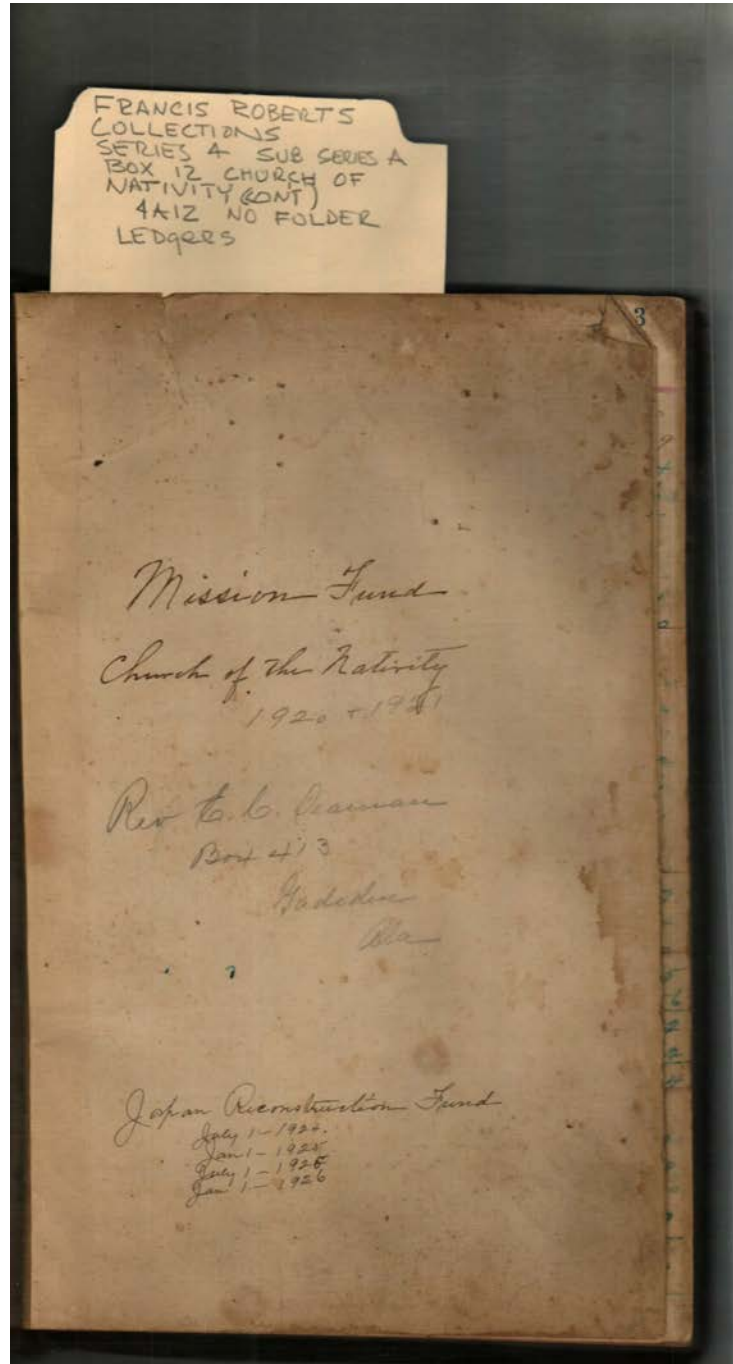 FRANCIS ROBERTS
COLLECTIONS
SERIES 4 SUB SERIES A
BOX 12 CHURCH OF
NATIVITY (CONT)
4A12 NO FOLDER
LEDgERS
3
Mission Fund
Church of the Nativity
1920 + 1921
Rev E. C. Seaman
Box 413
Gadsden
Ala
Japan Reconstruction Fund
July 1 - 1924.
Jan 1 - 1925
July 1 - 1925
Jan 1 - 1926